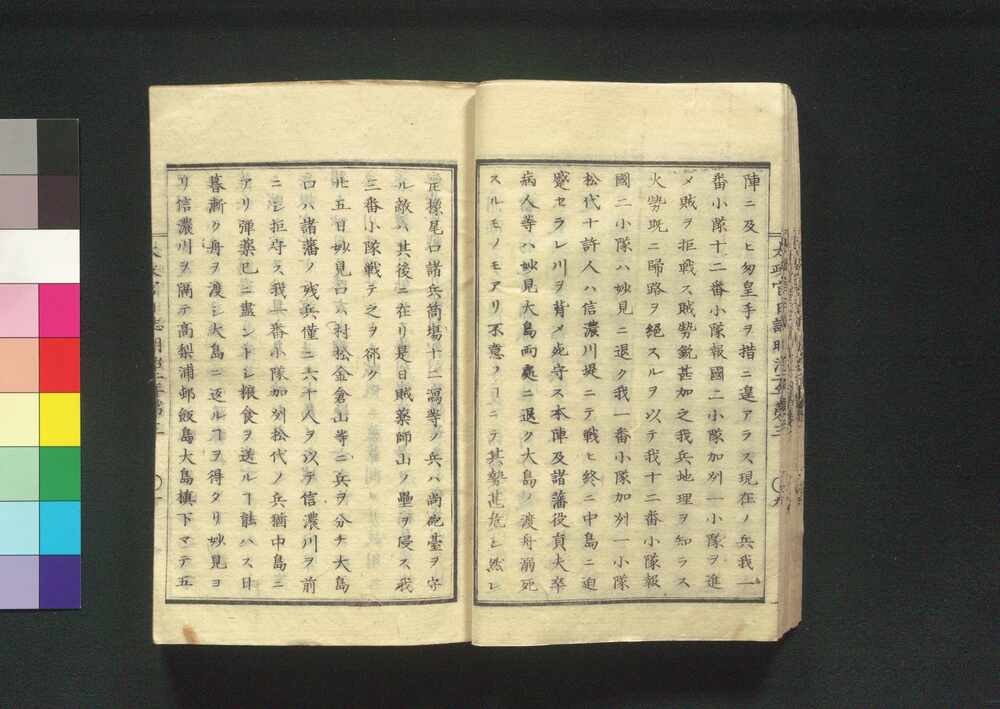 陣ニ及ヒ匆皇手ヲ措ニ遑アラス現在ノ兵我一
番小隊十二番小隊報國二小隊加州一小隊ヲ進
メ賊ヲ拒戦ス賊勢鋭甚加之我兵地理ヲ知ラス
火勢既ニ歸路ヲ絕スルヲ以テ我十二番小隊報
國二小隊ハ妙見ニ退ク我一番小隊加州一小隊
松代十許人ハ信濃川堤ニテ戦ヒ終ニ中島ニ迫
蹙セラレ川ヲ背メ死守ス本陣及諸藩役員夫卒
病人等ハ妙見大島両處ニ退ク大島ノ渡舟溺死
スルモノモアリ不意ノ ニテ其勢甚危シ然レ
𪜈椽尾口諸兵筒塲十二潟等ノ兵ハ尚砲臺ヲ守
ル敵ハ其後ニ在リ是日賊藥師山ノ壘ヲ侵ス我
三番小隊戦テ之ヲ郤ク
廿五日妙見口六村松金倉山等ニ兵ヲ分チ大島
口ハ諸藩ノ残兵僅ニ六十人ヲ以テ信濃川ヲ前
ニシ拒守ス我 番小隊加州松代ノ兵猶中島ニ
アリ弾藥已ニ盡ントシ粮食ヲ送ルヿ能ハス日
暮漸ク舟ヲ渡シ大島ニ返ルヿヲ得タリ妙見ヨ
リ信濃川ヲ隔テ高梨浦邨飯島大島槙下マテ五